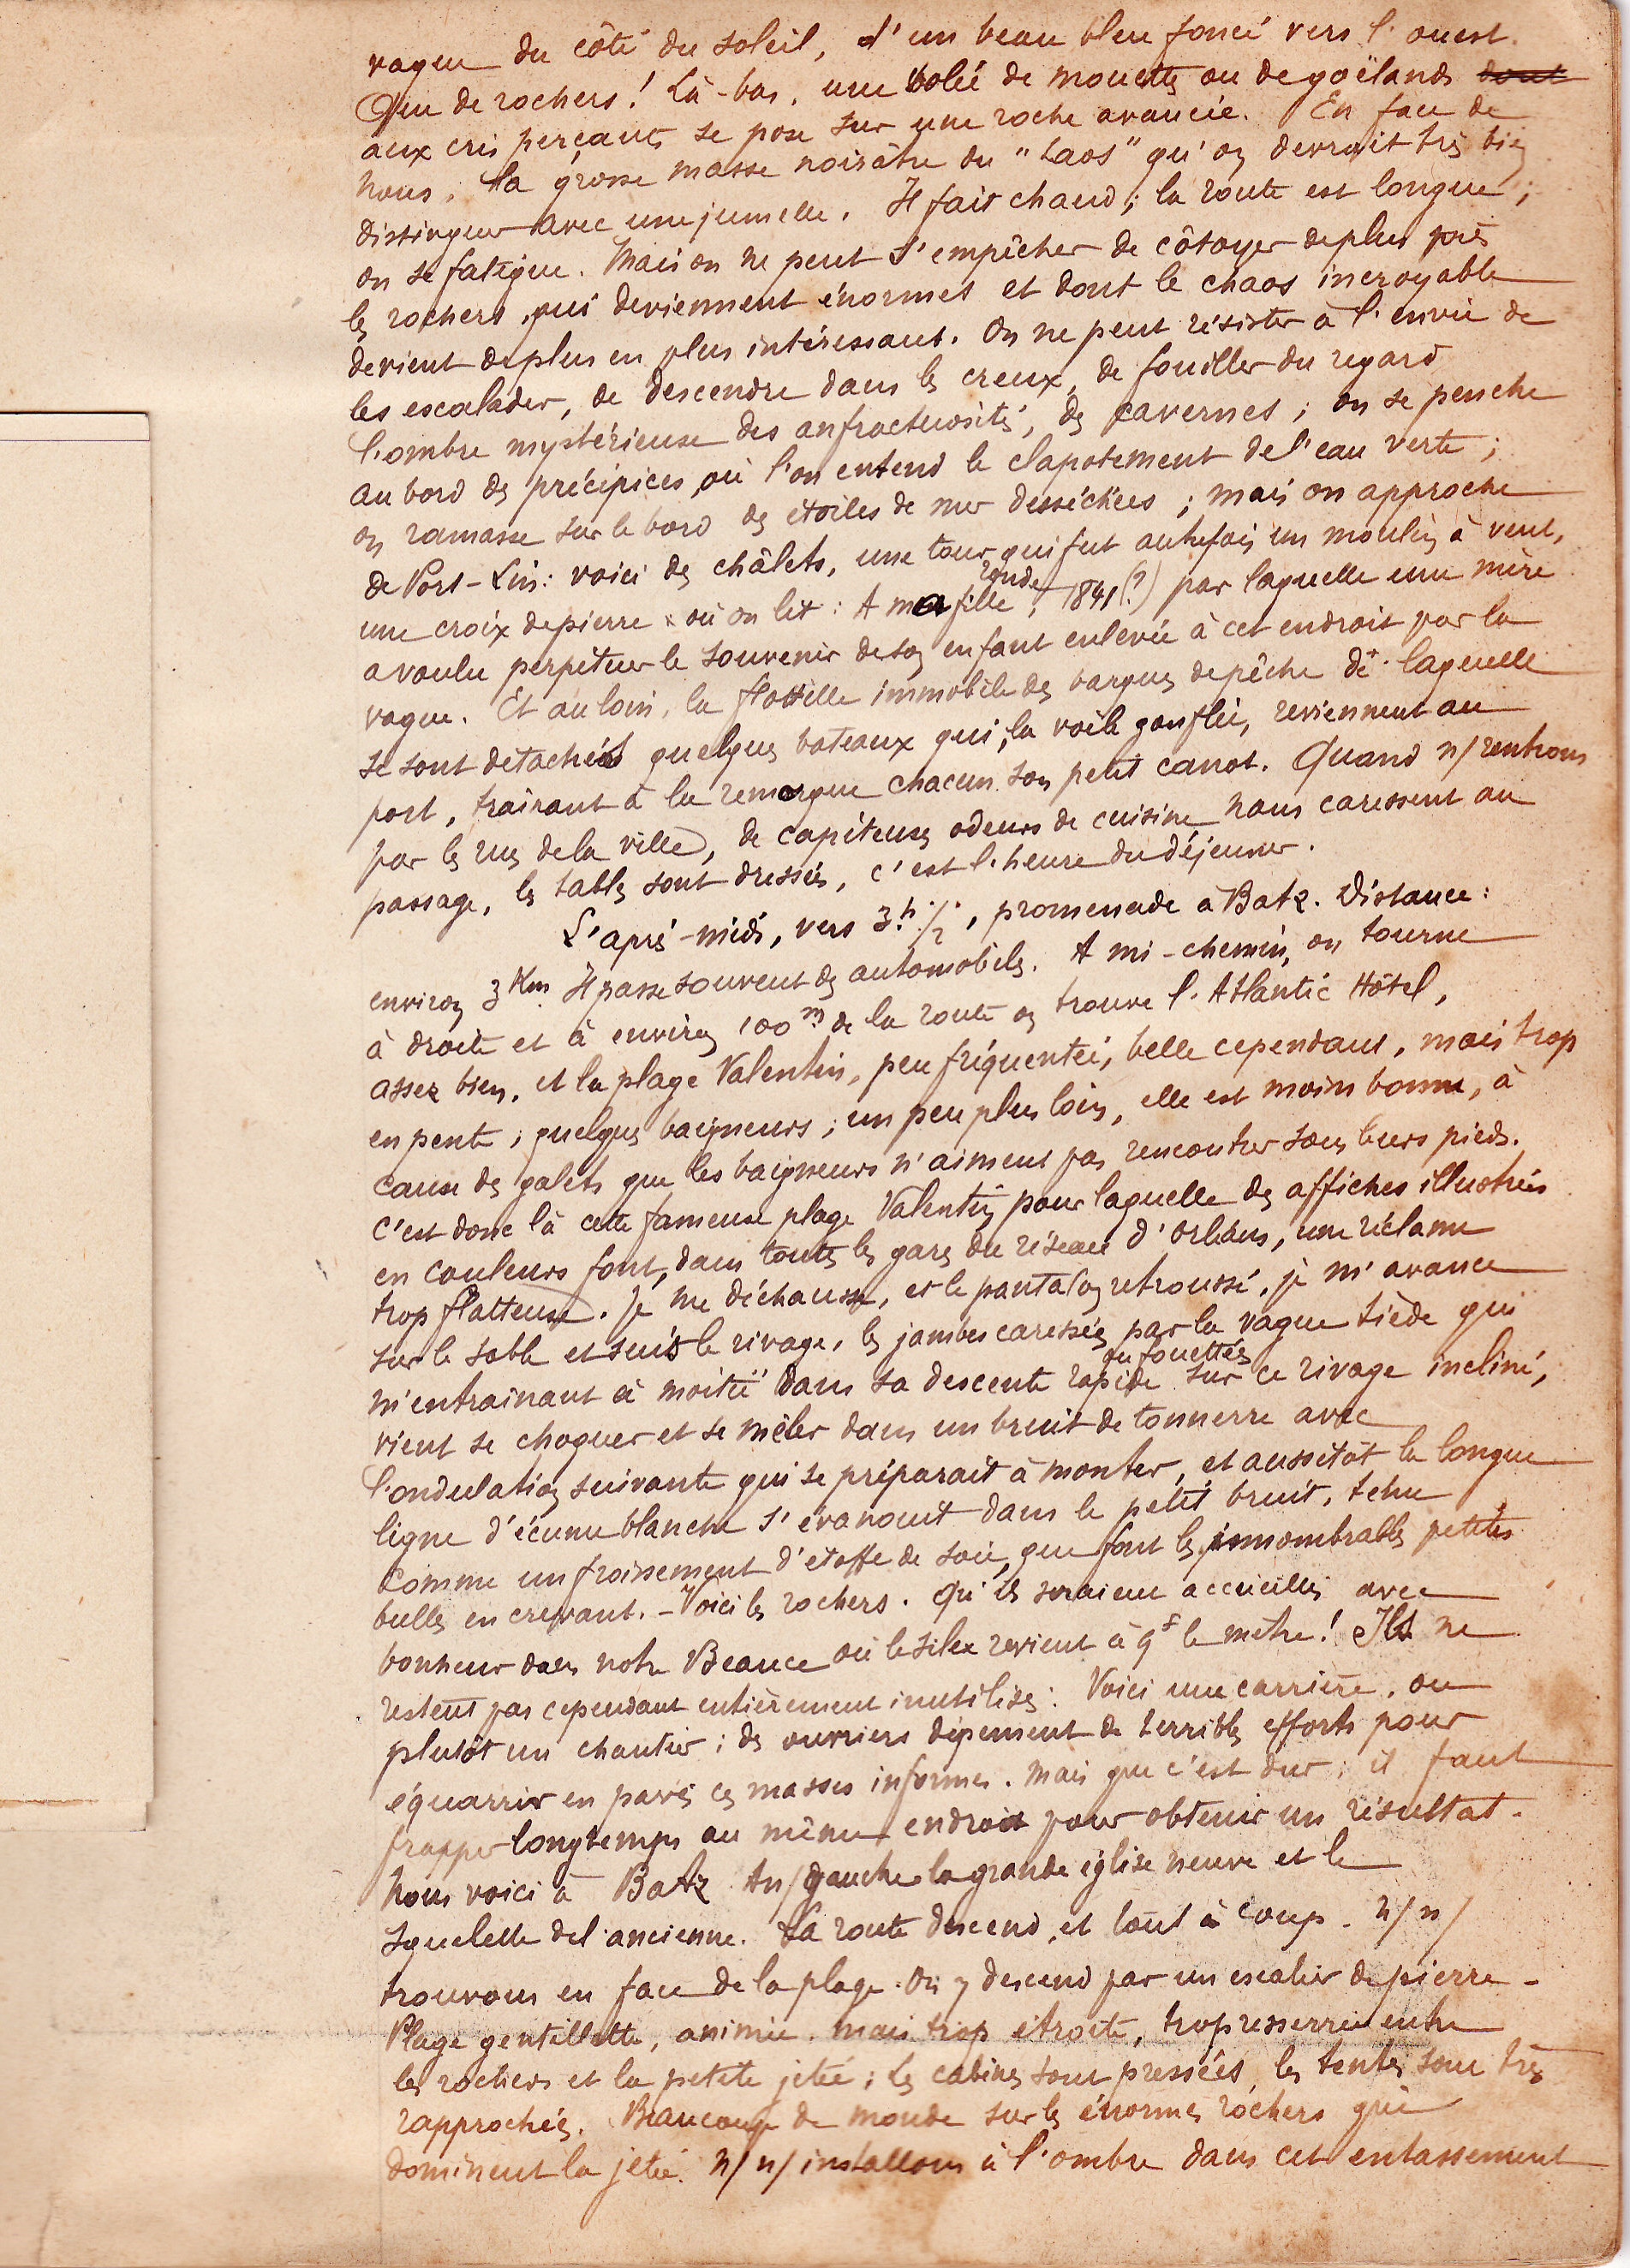 vague du côté du soleil, d'un beau bleu foncé vers l'ouest.
Que de rochers! Là-bas, une volée de mouettes ou de goëlands dont
aux cris perçants se pose sur une roche avancée. En face de
nous, la grosse masse noirâtre du "Laos" qu'on devrait très bien
distinguer avec une jumelle. Il fait chaud; la route est longue;
on se fatigue. Mais on ne peut s'empêcher de côtoyer de plus près
les rochers qui deviennent énormes et dont le chaos incroyable
devient de plus en plus intéressant. On ne peut résister à l'envie de
les escalader, de descendre dans les creux, de fouiller du regard
l'ombre mystérieuse des anfractuosités, des cavernes; on se penche
au bord des précipices où l'on entend le clapotement de l'eau verte;
on ramasse sur le bord des étoiles de mer desséchées; mais on approche
de Port-Lin: voici des châlets, une tour ronde qui fut autrefois un moulin à vent,
une croix de pierre où on lit: A ma fille, 1841 (?) par laquelle une mère
a voulu perpétuer le souvenir de son enfant enlevée à cet endroit par la
vague. Et au loin, la flottille immobile des barques de pêche dt laquelle
se sont détachés quelques bateaux qui, la voile gonflée, reviennent au
port, traînant à la remorque chacun son petit canot. Quand n/ rentrons
par les rues de la ville, de capiteuses odeurs de cuisine nous caressent au
passage, les tables sont dressées, c'est l'heure du déjeuner.
L'après-midi, vers 3h 1/2, promenade à Batz. Distance:
environ 3 Km. Il passe souvent des automobiles. A mi-chemin, on tourne
à droite et à environ 100m de la route on trouve l'Atlantic Hôtel,
assez bien, et la plage Valentin, peu fréquentée, belle cependant, mais trop
en pente; quelques baigneurs; un peu plus loin, elle est moins bonne, à
cause des galets que les baigneurs n'aiment pas rencontrer sous leurs pieds.
C'est donc là cette fameuse plage Valentin pour laquelle des affiches illustrées
en couleurs font, dans toutes les gares du réseau d'Orléans, une réclame
trop flatteuse. Je me déchausse, et le pantalon retroussé, je m'avance
sur le sable et suis le rivage, les jambes caressées ou fouettées par la vague tiède qui
m'entrainant à moitié dans sa descente rapide sur ce rivage incliné,
vient se choquer et se mêler dans un bruit de tonnerre avec
l'ondulation suivante qui se préparait à monter, et aussitôt la longue
ligne d'écume blanche s'évanouit dans le petit bruit, ténu
comme un froissement d'étoffe de soie, que font les innombrables petites
bulles en crevant. - Voici les rochers. Qu'ils seraient accueillis avec
bonheur dans notre Beauce où le silex revient à 9f le mètre! Ils ne
restent pas cependant entièrement inutilisés: Voici une carrière, ou
plutôt un chantier; des ouvriers dépensent de terribles efforts pour
équarrir en pavés ces masses informes. Mais que c'est dur; il faut
frapper longtemps au même endroit pour obtenir un résultat.
Nous voici à Batz. A n/ gauche la grande église neuve et le
squelette de l'ancienne. La route descend, et tout à coup n/ n/
trouvons en face de la plage. On y descend par un escalier de pierre -
Plage gentillette, animée, mais trop étroite, trop resserrée entre
les rochers et la petite jetée; les cabines sont pressées, les tentes sont très
rapprochées. Beaucoup de monde sur les énormes rochers qui
dominent la jetée. N/ n/ installons à l'ombre dans cet entassement